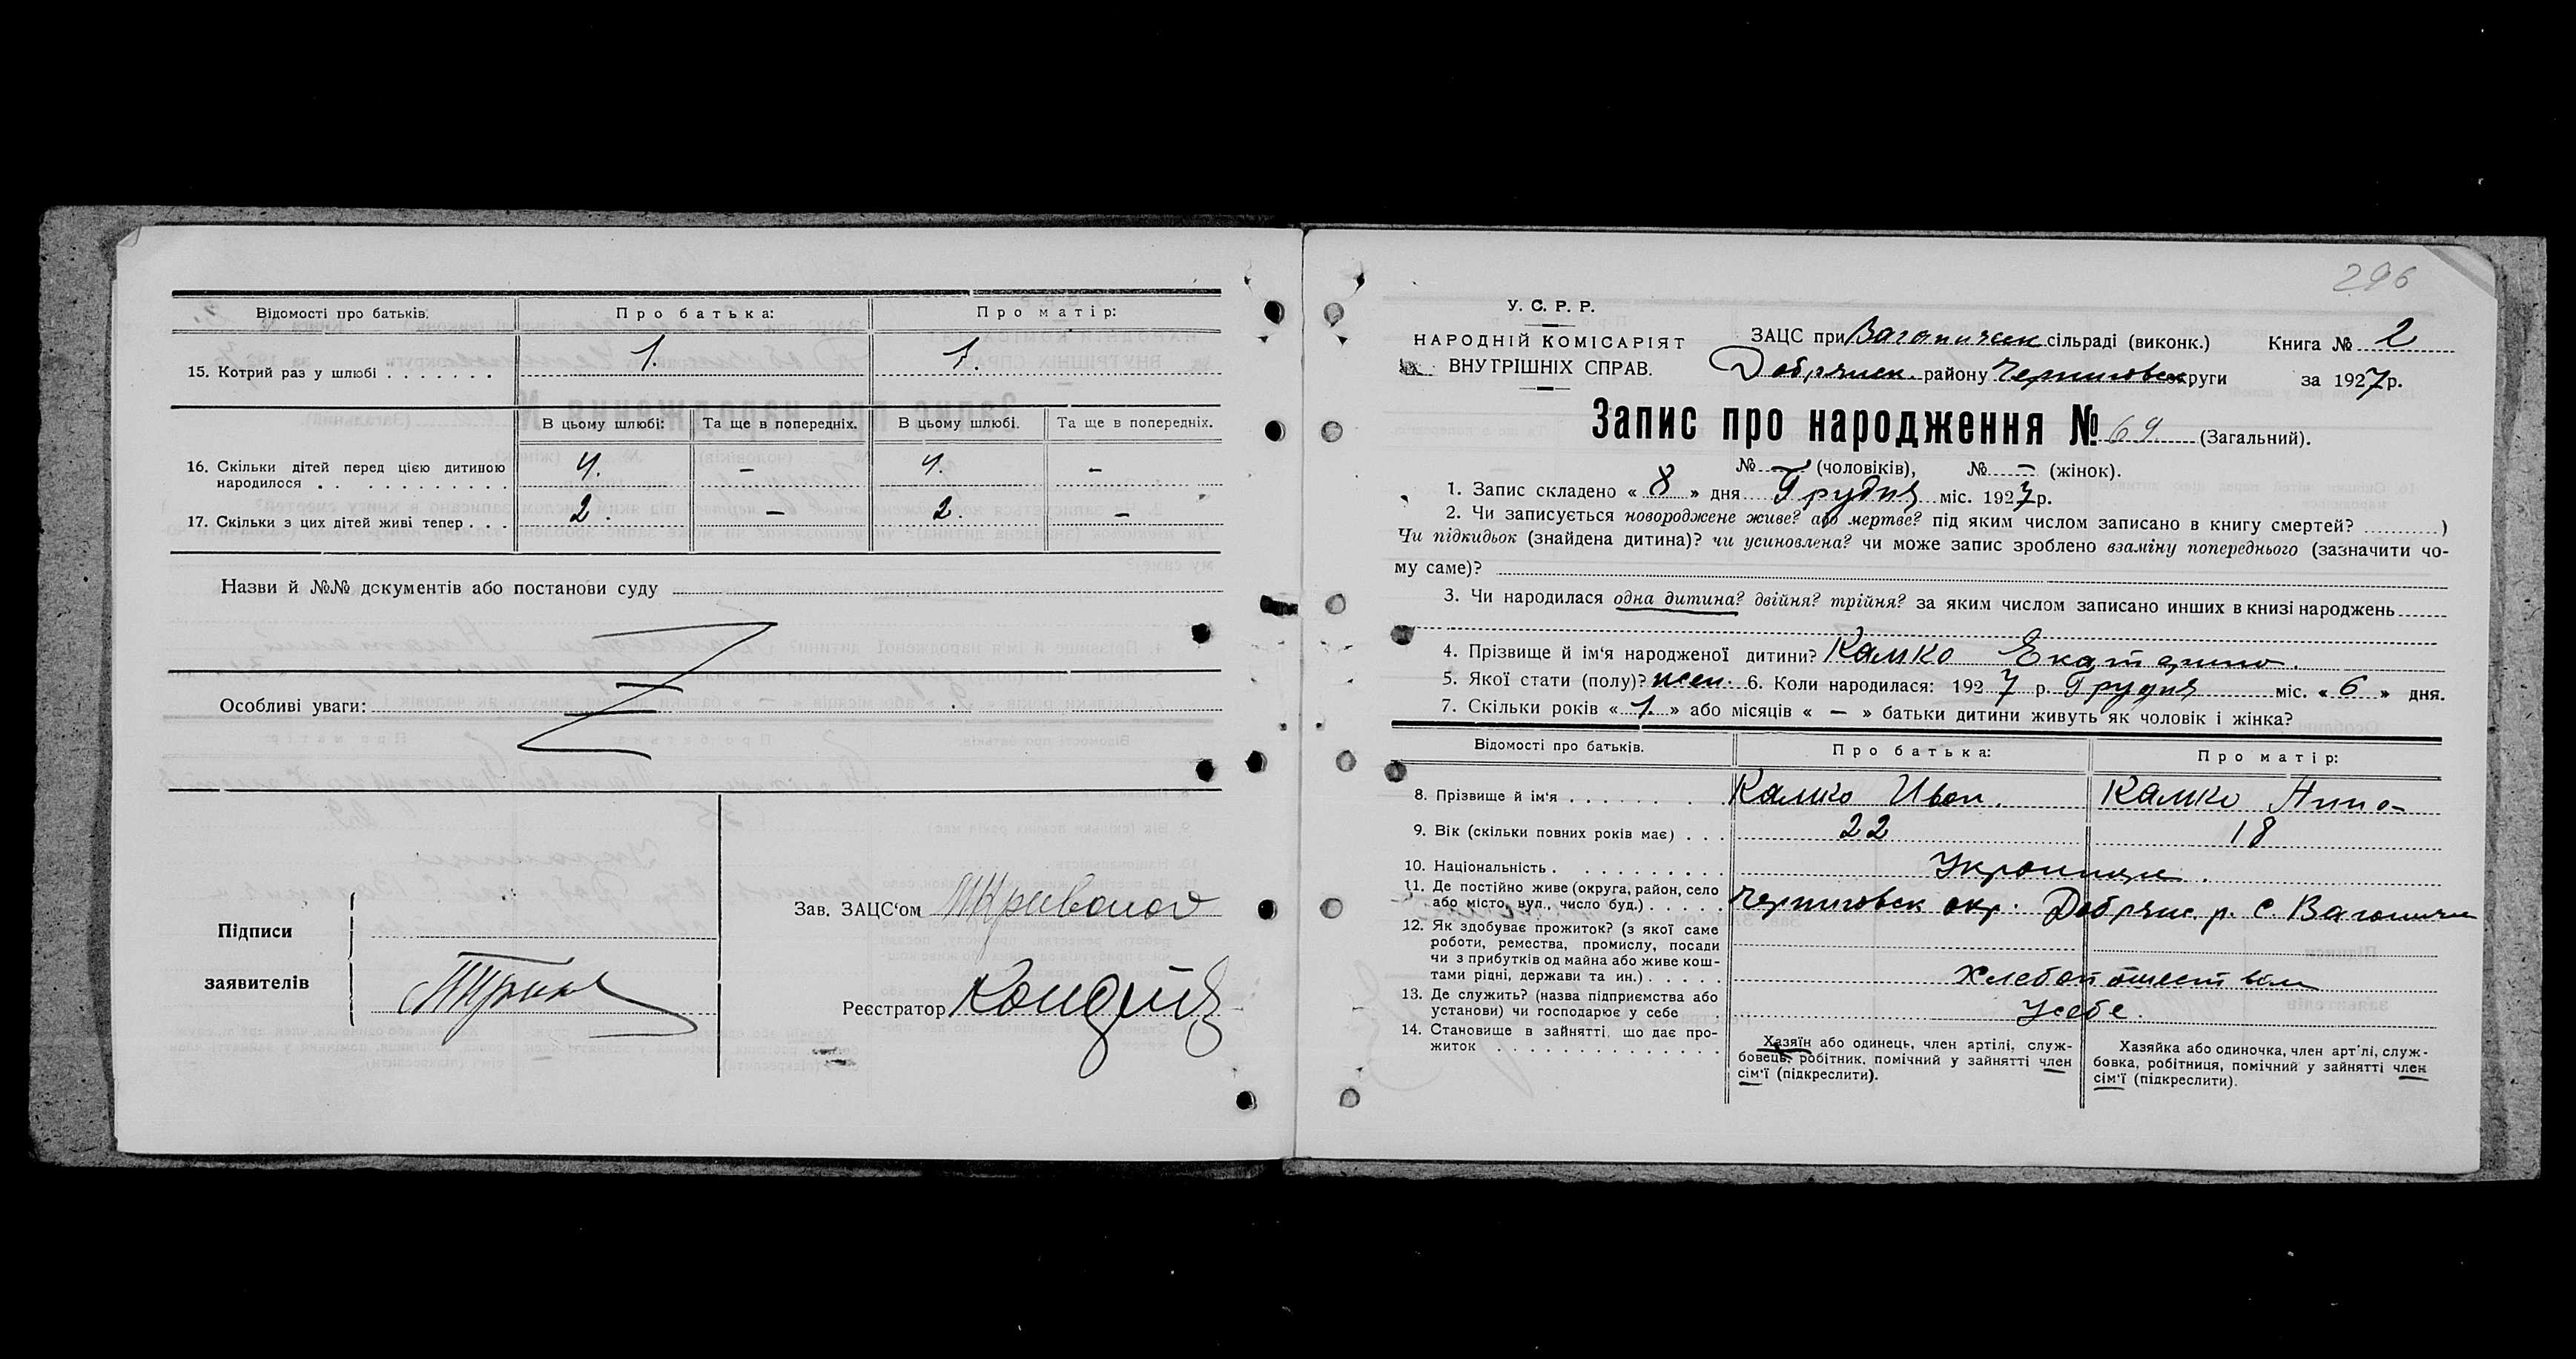 Відомості про батьків. Про батька: Про матір:
15. Котрий раз у шлюбі . . . . . . . 1. 1.
В цьому шлюбі: Та ще в попередніх. В цьому шлюбі. Та ще в попередніх.
16. Скільки дітей перед цією дитиною
народилося . . . . . . . . . . . 4. – 4. –
17. Скільки з цих дітей живі тепер . . . 2. – 2. –
Назви й №№ документів або постанови суду
Особливі уваги:
Підписи
заявителів
Зав. ЗАЦС‘ом
Реєстратор
296
У. С. Р. Р.
НАРОДНІЙ КОМІСАРІЯТ
ВНУТРІШНІХ СПРАВ.
ЗАЦС при Ваганичск сільраді (виконк.) Книга № 2
Добрянск. району Черниговск округи за 1927 р.
Запис про народження № 69 (Загальний).
№ – (чоловіків), № – (жінок).
1. Запис складено « 8 » дня Грудня міс. 1927 р.
2. Чи записується новороджене живе? або мертве? під яким числом записано в книгу смертей? )
Чи підкидьок (знайдена дитина)? чи усиновлена? чи може запис зроблено взаміну попереднього (зазначити чо-
му саме)?
3. Чи народилася одна дитина? двійня? трійня? за яким числом записано инших в книзі народжень
4. Прізвище й ім‘я народженої дитини? Камко Екатерина.
5. Якої стати (полу)? жен. 6. Коли народилася: 1927 р. Грудня міс. « 6 » дня.
7. Скільки років « 1. » або місяців « – » батьки дитини живуть як чоловік і жінка?
Відомості про батьків. Про батька: Про матір:
8. Прізвище й ім‘я . . . . . . . . Камко Иван. Камко Анна
9. Вік (скільки повних років має) . . . 22 18
10. Національність . . . . . . . . . . Украинци.
11. Де постійно живе (округа, район, село
або місто, вул., число буд.) . . . . . Черниговск окр. Добрянс. р. с. Ваганичи
12. Як здобуває прожиток? (з якої саме
роботи, ремества, промислу, посади
чи з прибутків од майна або живе кош-
тами рідні, держави та ин.) . . . . . Хлебопашеством
13. Де служить? (назва підприємства або
установи) чи господарює у себе . У себе.
14. Становище в зайнятті, що дає про-
житок . . . . . . . . . . . . . .
Хазяїн або одинець, член артілі, служ-
бовець, робітник, помічний у зайнятті член
сім‘ї (підкреслити).
Хазяйка або одиночка, член арт‘лі, служ-
бовка, робітниця, помічний у зайнятті член
сім‘ї (підкреслити).